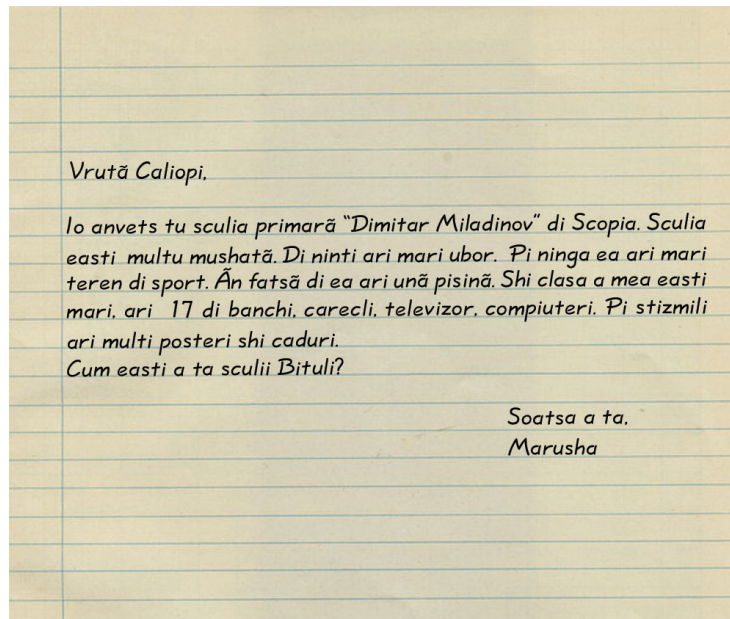 Vrutã Caliopi,
Io anvets tu sculia primarã “Dimitar Miladinov” di Scopia. Sculia
easti multu mushatã. Di ninti ari mari ubor. Pi ninga ea ari mari
teren di sport. Ãn fatsã di ea ari unã pisinã. Shi clasa a mea easti
mari, ari 17 di banchi, carecli, televizor, compiuteri. Pi stizmili
ari multi posteri shi caduri.
Cum easti a ta sculii Bituli?
Soatsa a ta,
Marusha